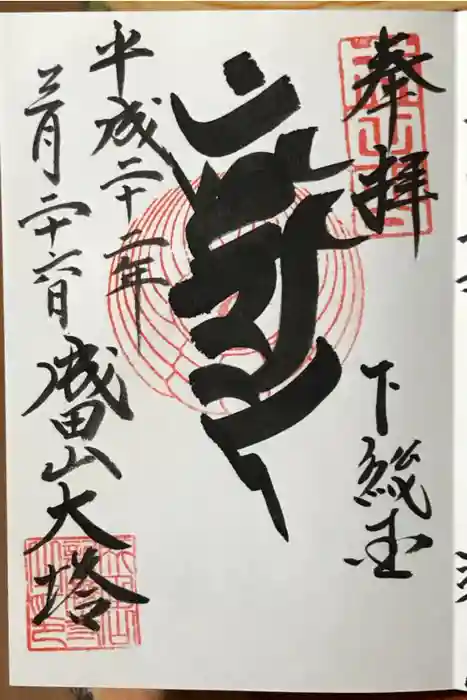 奉拝
下総国
平成二十二年
三月二十六日
成田山大塔